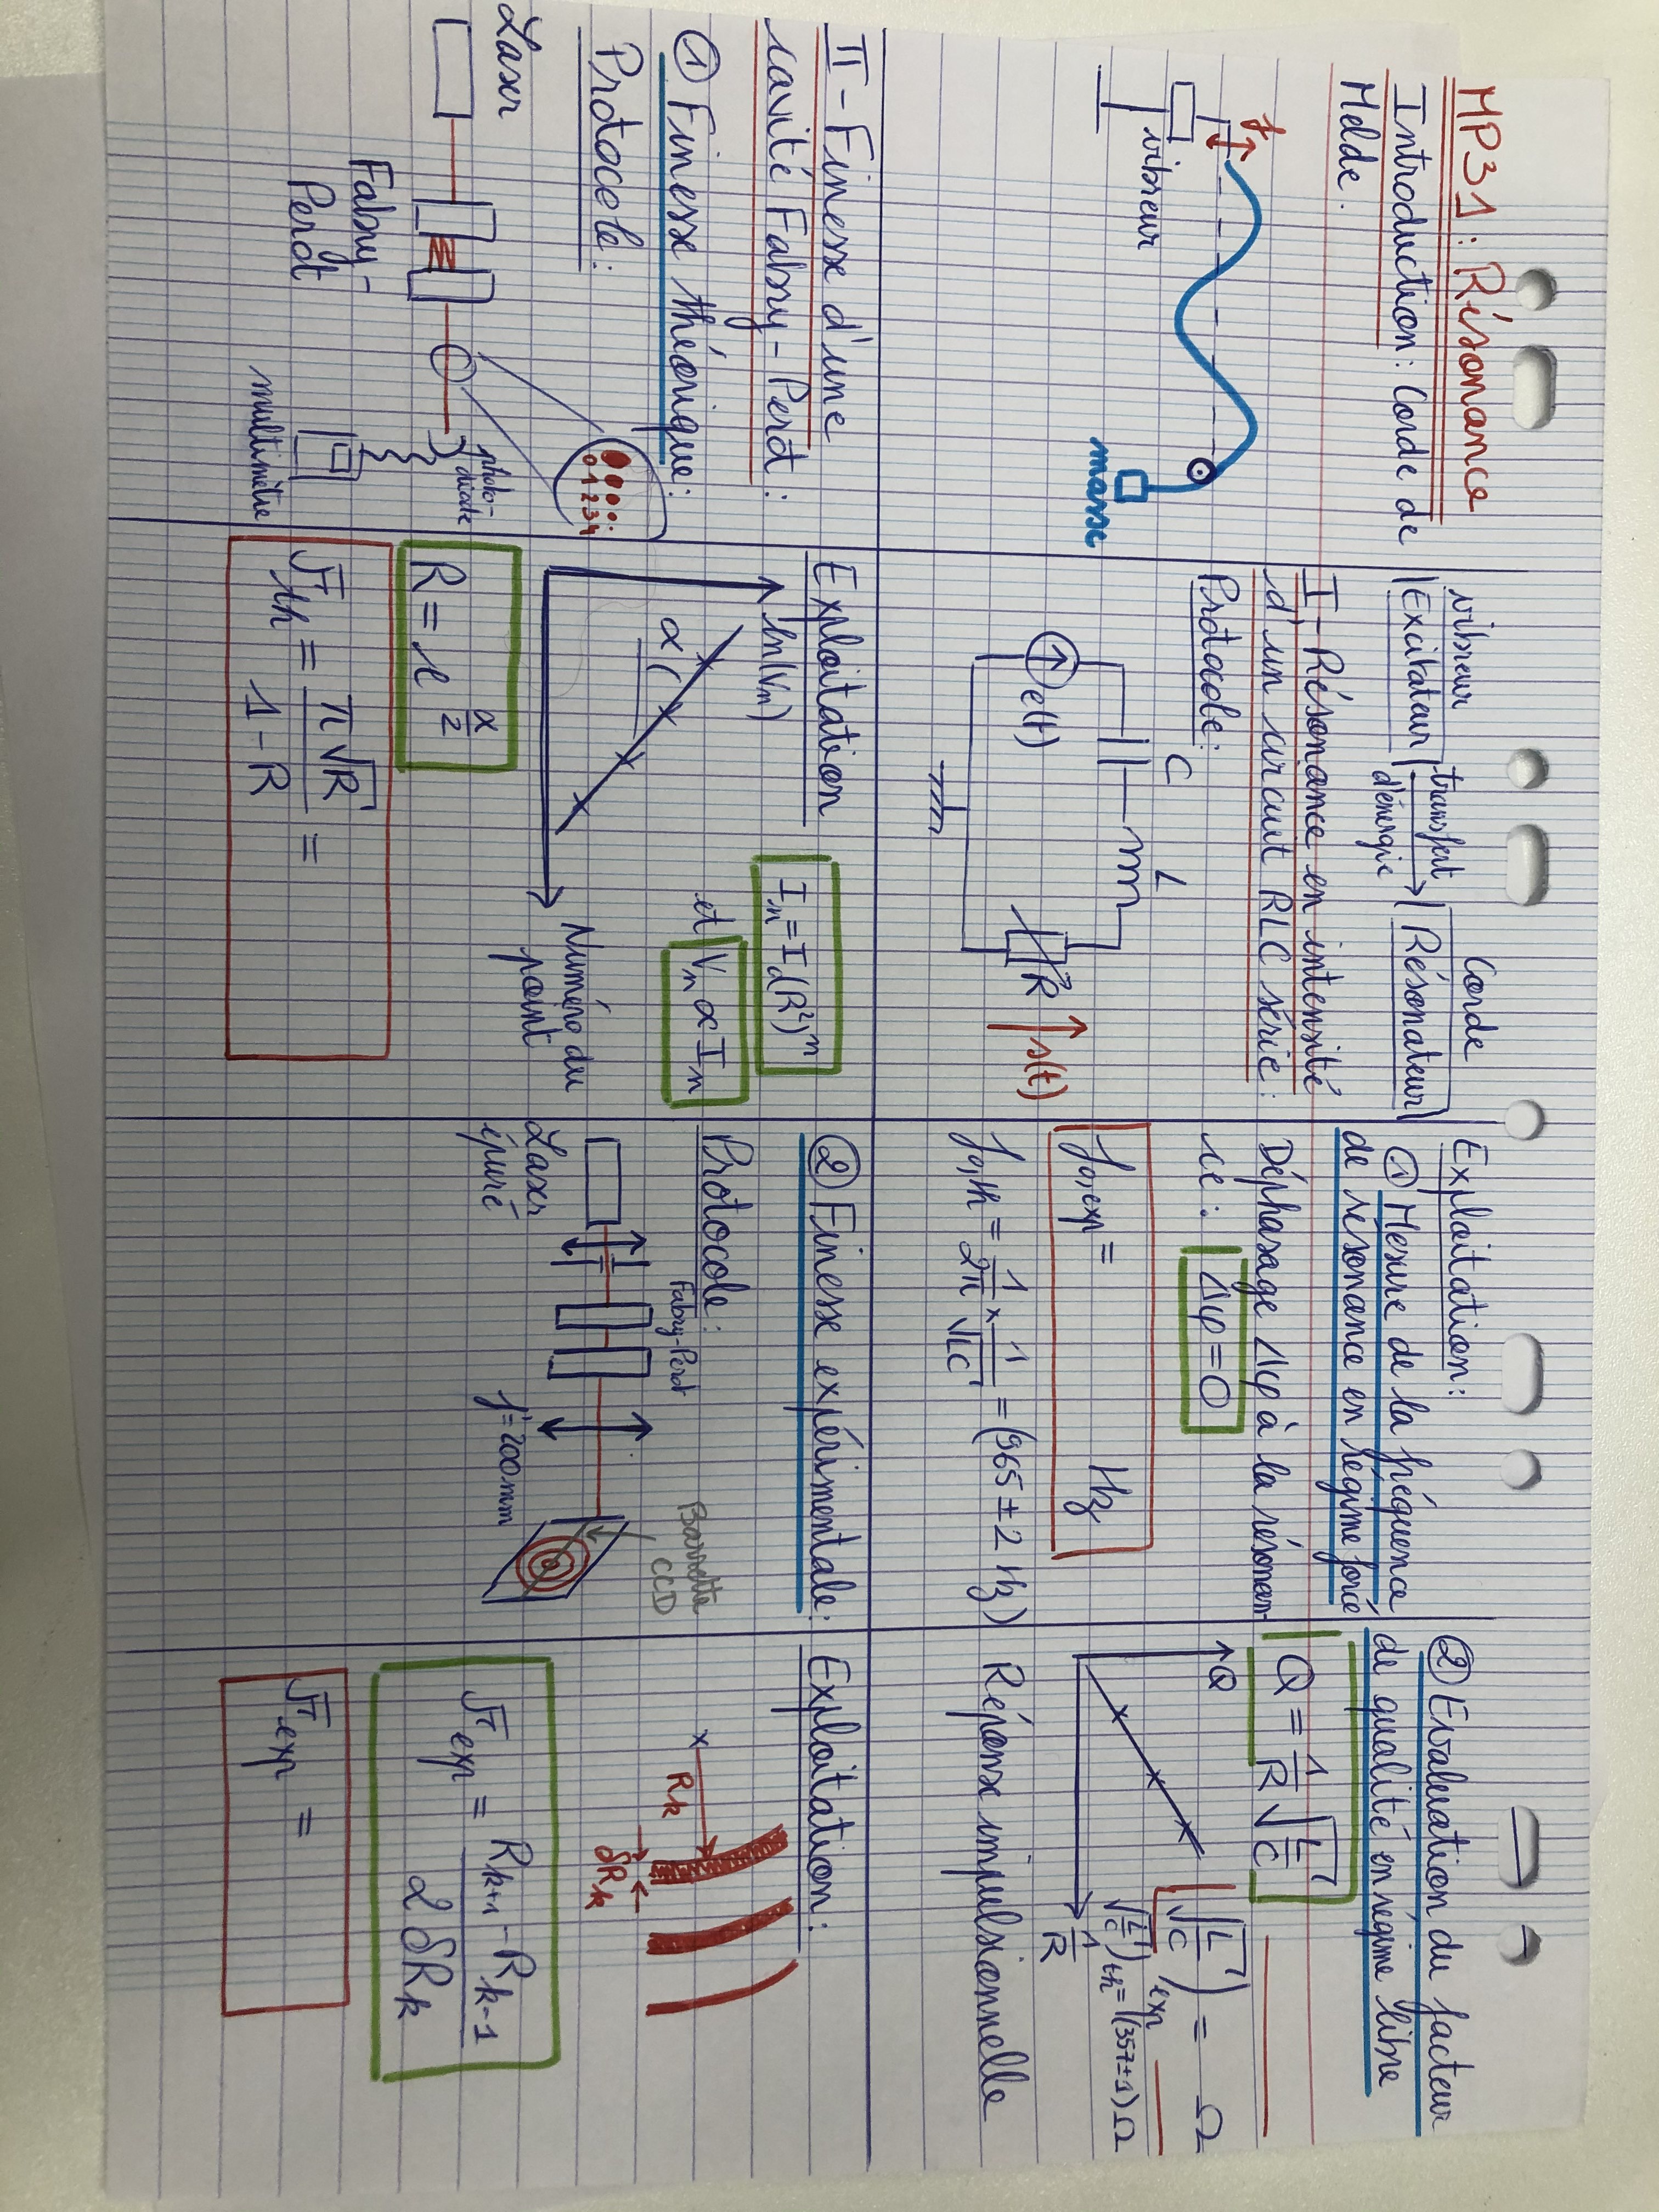 MP31: Résonance
Introduction: Corde de
Melde.
f
vibreur
masse
vibreur
Corde
Excitateur
transfert
d'énergie
Résonateur
I-Résonance en intensité
d'un circuit RLC série:
Protocole:
C
L
e(t)
R
s(t)
Exploitation:
① Mesure de la fréquence
de résonance en régime forcé
Déphasage Δφ à la résonan-
ce: Δφ=0
f0,exp = Hz
f0,th = 1/2π × 1/√LC = (965 ± 2 Hz)
② Evaluation du facteur
de qualité en régime libre
Q = 1/R √L/C
Q
1/R
√L/C)exp = Ω
√L/C)th = (357±1)Ω
Réponse impulsionnelle
II-Finesse d'une
cavité Fabry-Perot:
① Finesse théorique:
Protocole:
Laser
Fabry-
Perot
photo-
diode
multimètre
0 1 2 3 4
Exploitation
ln(Vn)
α
Numéro du
point
In = I0(R²)^n
et Vn ∝ In
R = e^α/2
Fth = π√R / 1-R =
② Finesse expérimentale:
Protocole:
Laser
épuré
Fabry-Perot
f'=200mm
Barrette
CCD
Exploitation:
Rk
δRk
Fexp = Rk+1 - Rk-1 / 2 δRk
Fexp =